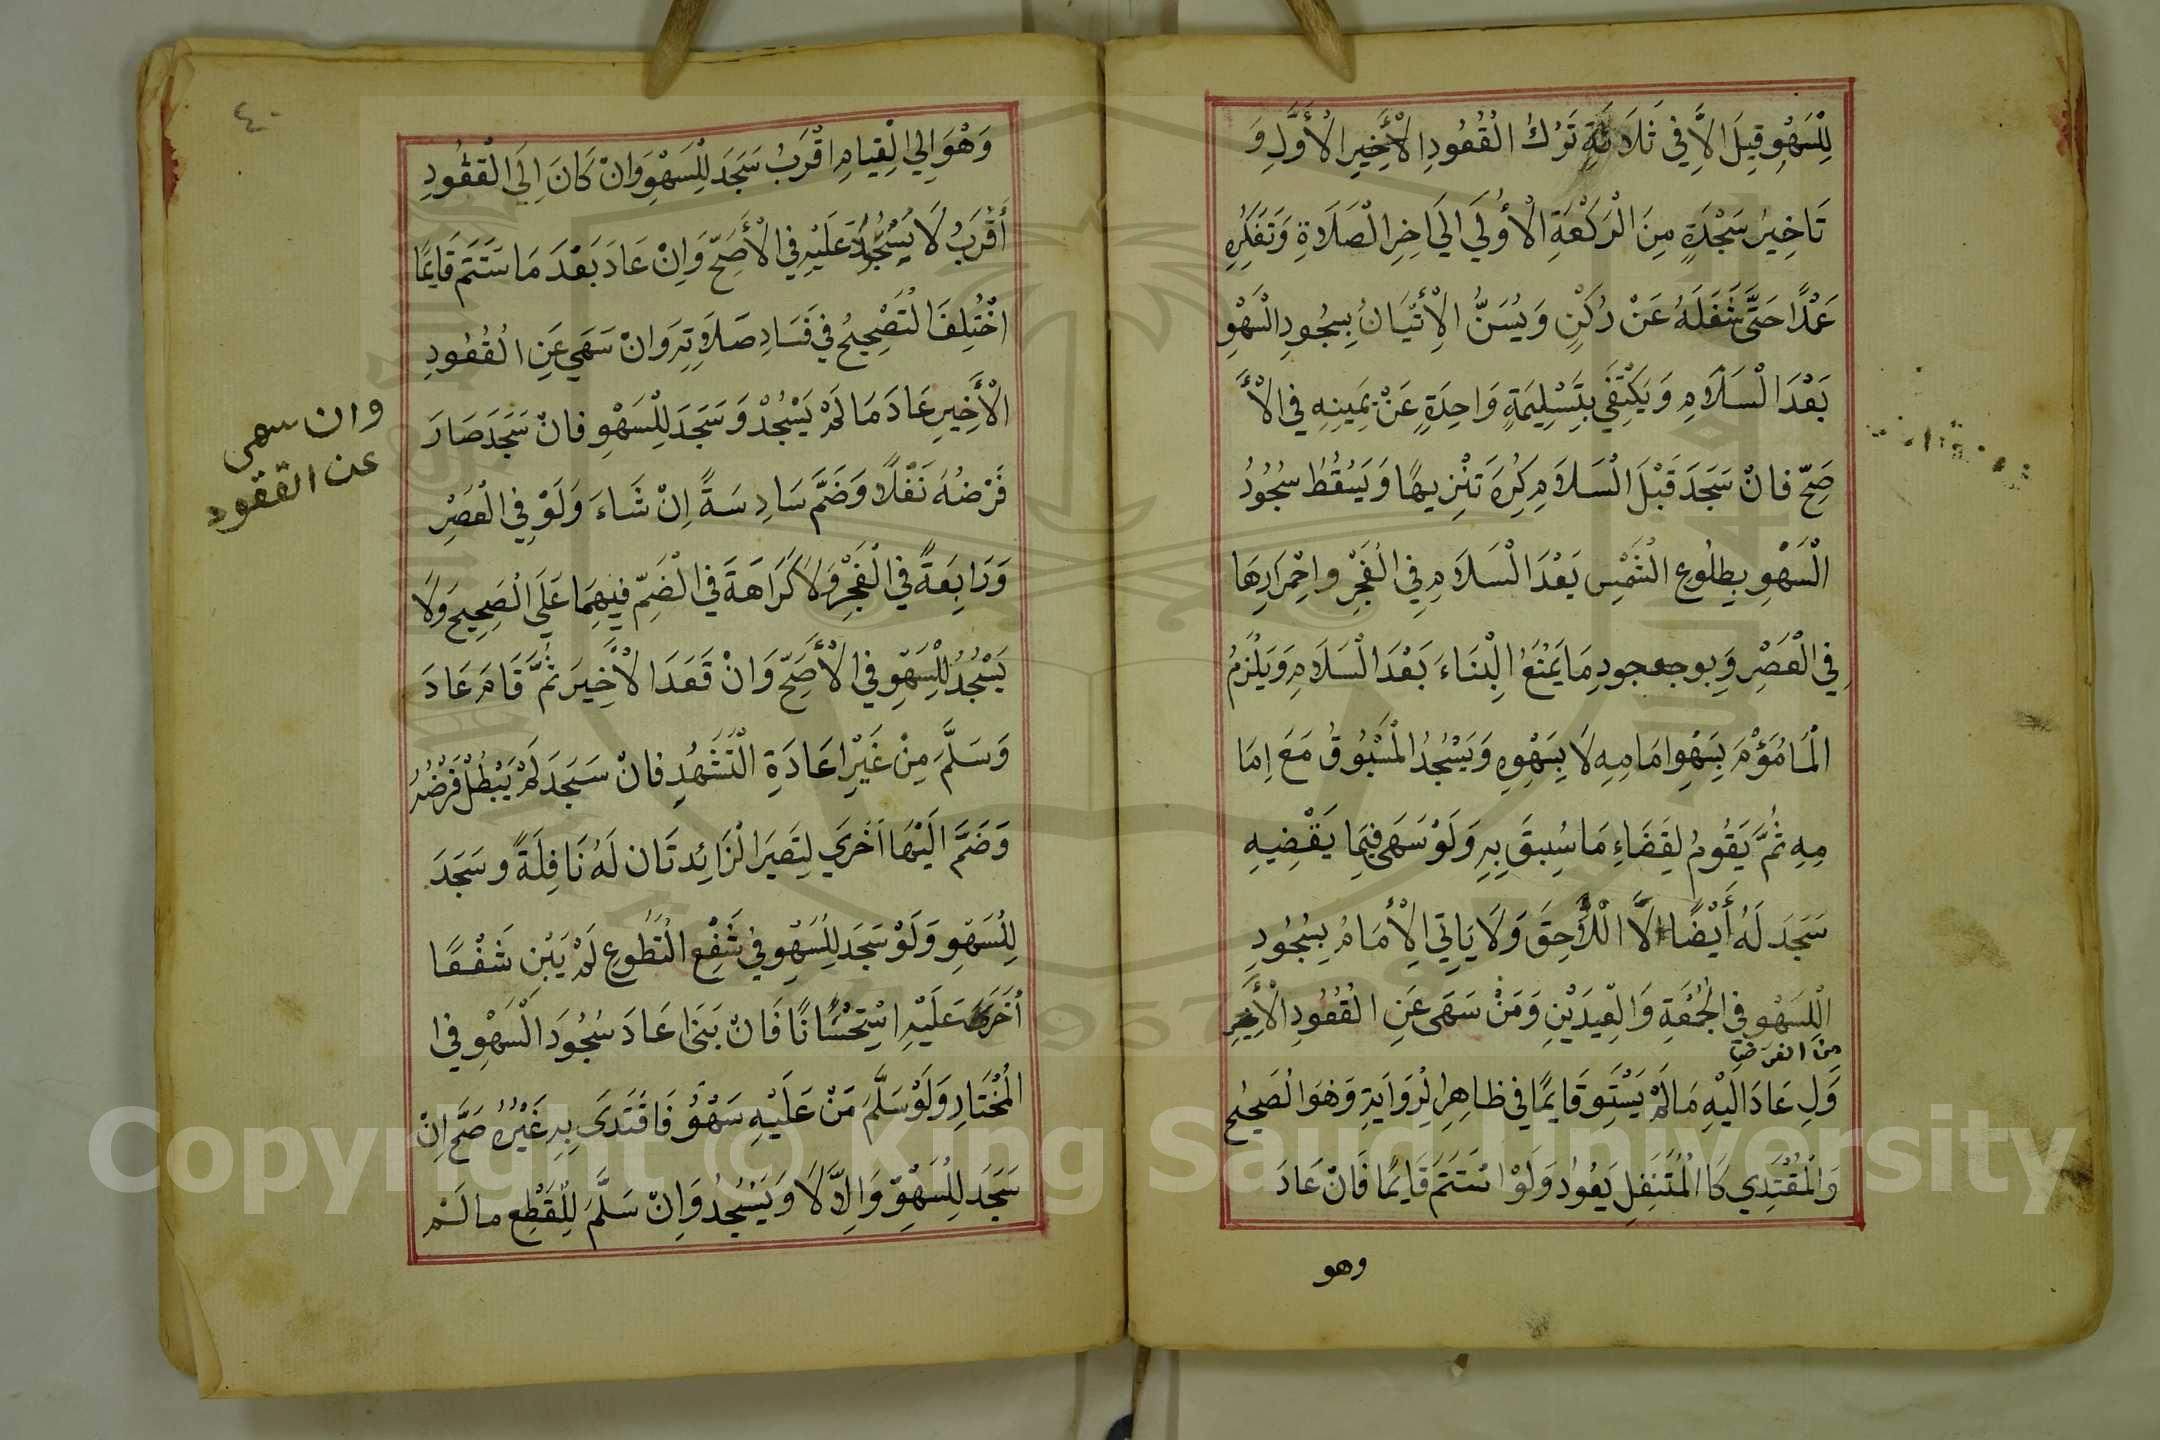 لِلْسَهْوِ قِيلَ الاَّ فِي ثَلَاثَةٍ تَرْكُ الْقُعُودِ الْأَخِيرِ الْأَوَّلِ وَ
تَاخِيرُ سَجْدَةٍ مِنَ الْرَكْعَةِ الْأُولَي الَي اخِرِ الْصَلَاةِ وَتَفَكُرِهِ
عَمْدًا حَتَّى شَغَلَهُ عَنْ رُكْنٍ وَيُسَنُّ الْأِتْيَانُ بِسُجُودِ السَهْوِ
بَعْدَ الْسَلَامِ وَيَكْتَفَي بِتَسْلِيمَةٍ وَاحِدَةٍ عَنْ يَمِينِهِ فِي الْأَ
صَحِّ فانْ سَجَدَ قَبْلَ الْسَلَامِ كُرِهَ تَنْزِيهًا وَيَسْقُطُ سُجُودُ
الْسَهْوِ بِطُلُوعِ الْشَمْسِ بَعْدَ الْسَلَامِ فِي الْفَجْرِ واحْمِرَارِهَا
فِي الْعَصْرِ وَبِوجعجودِ مَا يَمْنَعُ الْبِنَاءَ بَعْدَ الْسَلَامِ وَيَلْزَمُ
الْمَامُؤْمَ بِسَهْوِ امَامِهِ لَا بِسَهْوِهِ وَيَسْجُدُ الْمَسْبُوقُ مَعَ اِمَا
مِهِ ثُمَّ يَقُومُ لِقَضَاءِ مَا سُبِقَ بِهِ وَلَوْ سَهَى فِيمَا يَقْضِيهِ
سَجَدَ لَهُ أَيْضًا لَّا الْلَّاحِقَ وَلَا يَاتِي الْأِمَامُ بِسُجُودِ
الْلِسَهْوِ فِي الْجُمُعَةِ وَالْعِيدَيْنِ وَمَنْ سَهَى عَنِ الْقُعُودِ الْأَخِيرِ
مِنَ الفرَضِ
وَلِ عَادَ الَيْهِ مَا لَمْ يَسْتَوِ قَايمًا فِي ظاهِرِ الْرِوَايَةِ وَهُوَ الْصَحِيحُ
وَالْمُقْتَدِي كَا الْمُتَنَفِلِ يَعُودُ وَلَوْ اسْتَتَمَ قَايمًا فَانْ عَادَ
وهو
٤٠
وَهْوَ اِلِي الْقِيامِ اقْرَبُ سَجَدَ لِلْسَهْوِ وَانْ كَانَ اِلَي الْقُعُودِ
أَقْرَبُ لَا سُجُودَ عَلَيْهِ فِي الْأَصَحِّ وَاِنْ عَادَ بَعْدَ مَا سْتَتَمَ قَايمًا
اخْتُلِفَ الْتَصْحِيحُ فِي فَسَادِ صَلَاتِهِ وَانْ سَهَي عَنِ الْقُعُودِ
الْأَخِيرِ عَادَ مَا لَمْ يَسْجُدْ وَسَجَدَ لِلْسَهْوِ فانْ سَجَدَ صَارَ
فَرْضُهُ نَفْلًا وَضَمَّ سَادِسَةً اِنْ شَاءَ وَلَوْ فِي الْعَصْرِ
وَرَابِعَةً فِي الْفَجْرِ وَلَا كَرَاهَةَ فِي الْضَمِّ فِيهِمَا عَلَي الْصَحِيحِ وَلَا
يَسْجُدُ لِلْسَهْوِ فِي الْأَصَحِّ وَانْ قَعَدَ الْأَخِيرَ ثُمَّ قَامَ عَادَ
وَسَلَّمَ مِنْ غَيْرِ اعَادَةِ الْتَشَهُدِ فانْ سَجَدَ لَمْ يَبْطُلْ فَرْضُهُ
وَضَمَّ الَيْهَا اُخْرَي لِتَصِيرَ الْزَائِدتَان لَهُ نَافِلَةً وسَجَدَ
لِلْسَهْوِ وَلَوْ سَجَدَ لِلْسَهْوِ فِي شَفْعِ الْتَطُوعِ لَمْ يَبْنِ شَفْعًا
أخَرَ عَلَيْهِ اسْتِحْسَانًا فَانْ بَنَى اعَادَ سُجُودَ الْسَهْوِ فِي ا
الْمُخْتَارِ وَلَوْ سَلَّمَ مَنْ عَلَيْهِ سَهْوٌ فَاقْتَدَى بِهِ غَيْرُهُ صَحَّ اِنْ
سَجَدَ لِلْسَهْوِ وَالِاَّ لَا وَيَسْجُدُ وَاِنْ سَلَّمَ لِلْقَطْعِ مالَمْ
وان سهى
عن القعود
Copyright © King Saud University
1957